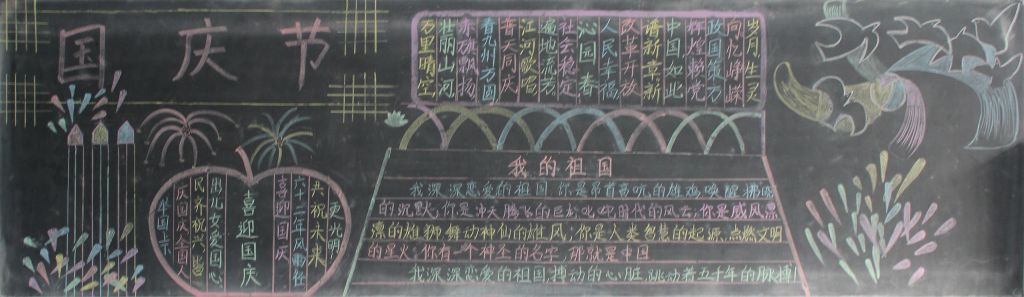 国庆节
万里晴空
壮丽山河
赤旗飘扬
看九州方圆
普天同庆
江河歌唱
遍地流
社会稳定
沁园春
人民幸福
改革开放
谱新章新
中国如此
辉煌赖党
政国策万
忆峥嵘
岁月
喜迎国庆
庆国庆全国人
民齐祝
出儿女爱国心
喜迎国庆
六十二年风雨
共祝未来
更光明
我的祖国
我深深恋爱的祖国,你是昂首高吭的雄鸡唤醒拂晓
的沉默;你是冲天腾飞的巨龙叱咤时代的风云;你是威风凛
凛的雄狮舞动神州的雄风;你是人类智慧的起源,点燃文明
的星火;你有一个神圣的名字,那就是中国
我深深恋爱的祖国,搏动的心脏,跳动着五千年的脉搏!